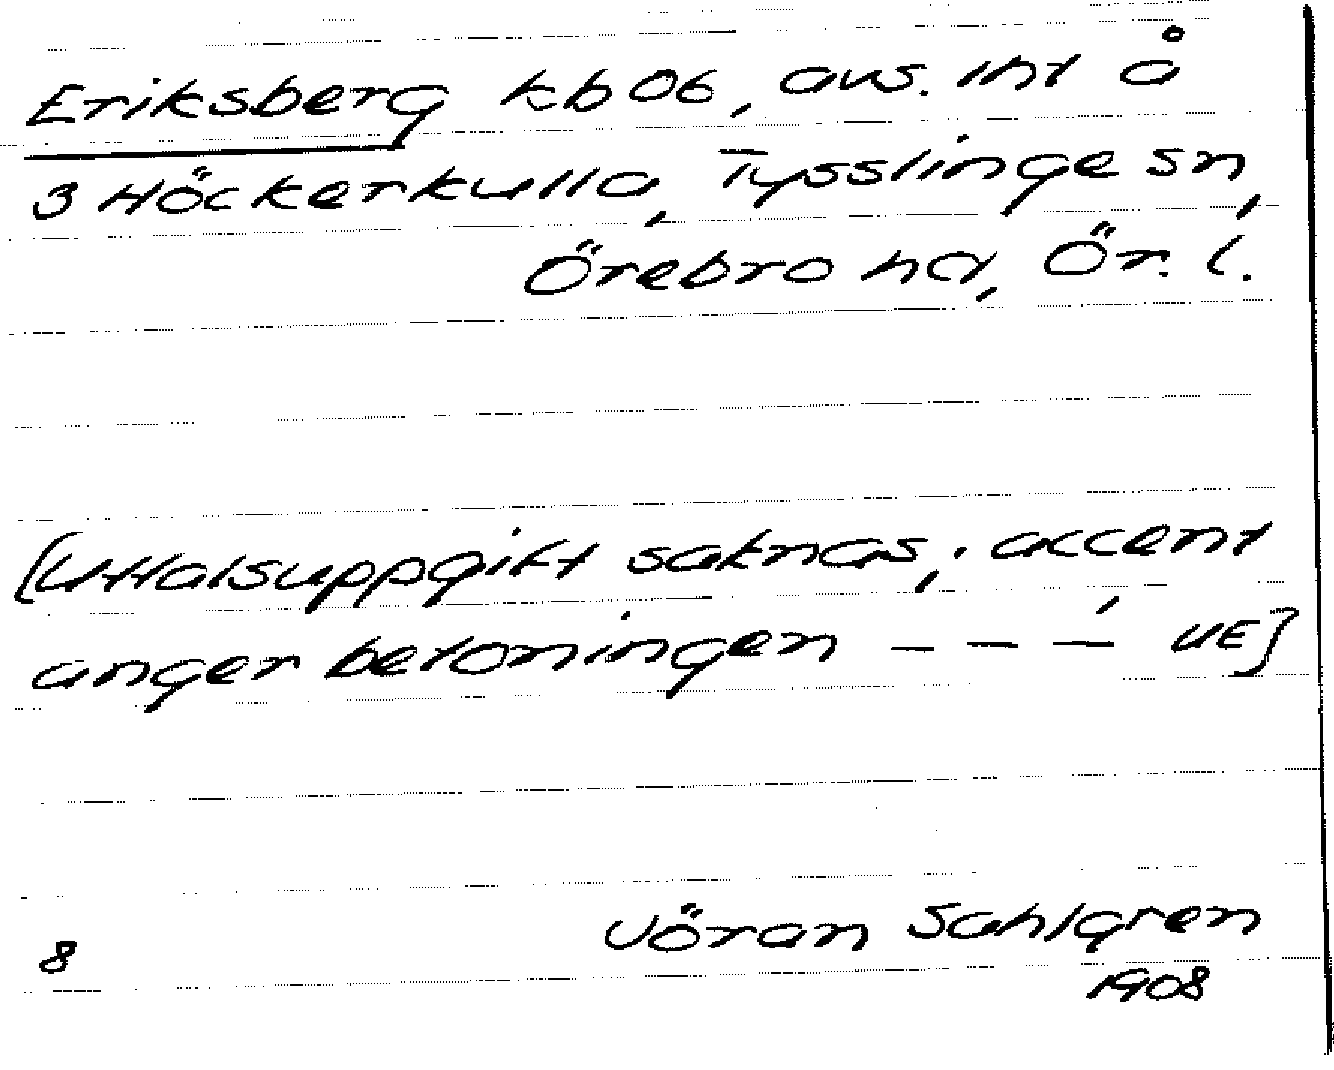 Eriksberg kb 06, avs. int å
3 Höckerkulla, Tysslinge sn,
Örebro hd, Ör. l.
[Uttalsuppgift saknas; accent
anger betoningen – – –́ UE]
Jöran Sahlgren
8
1908